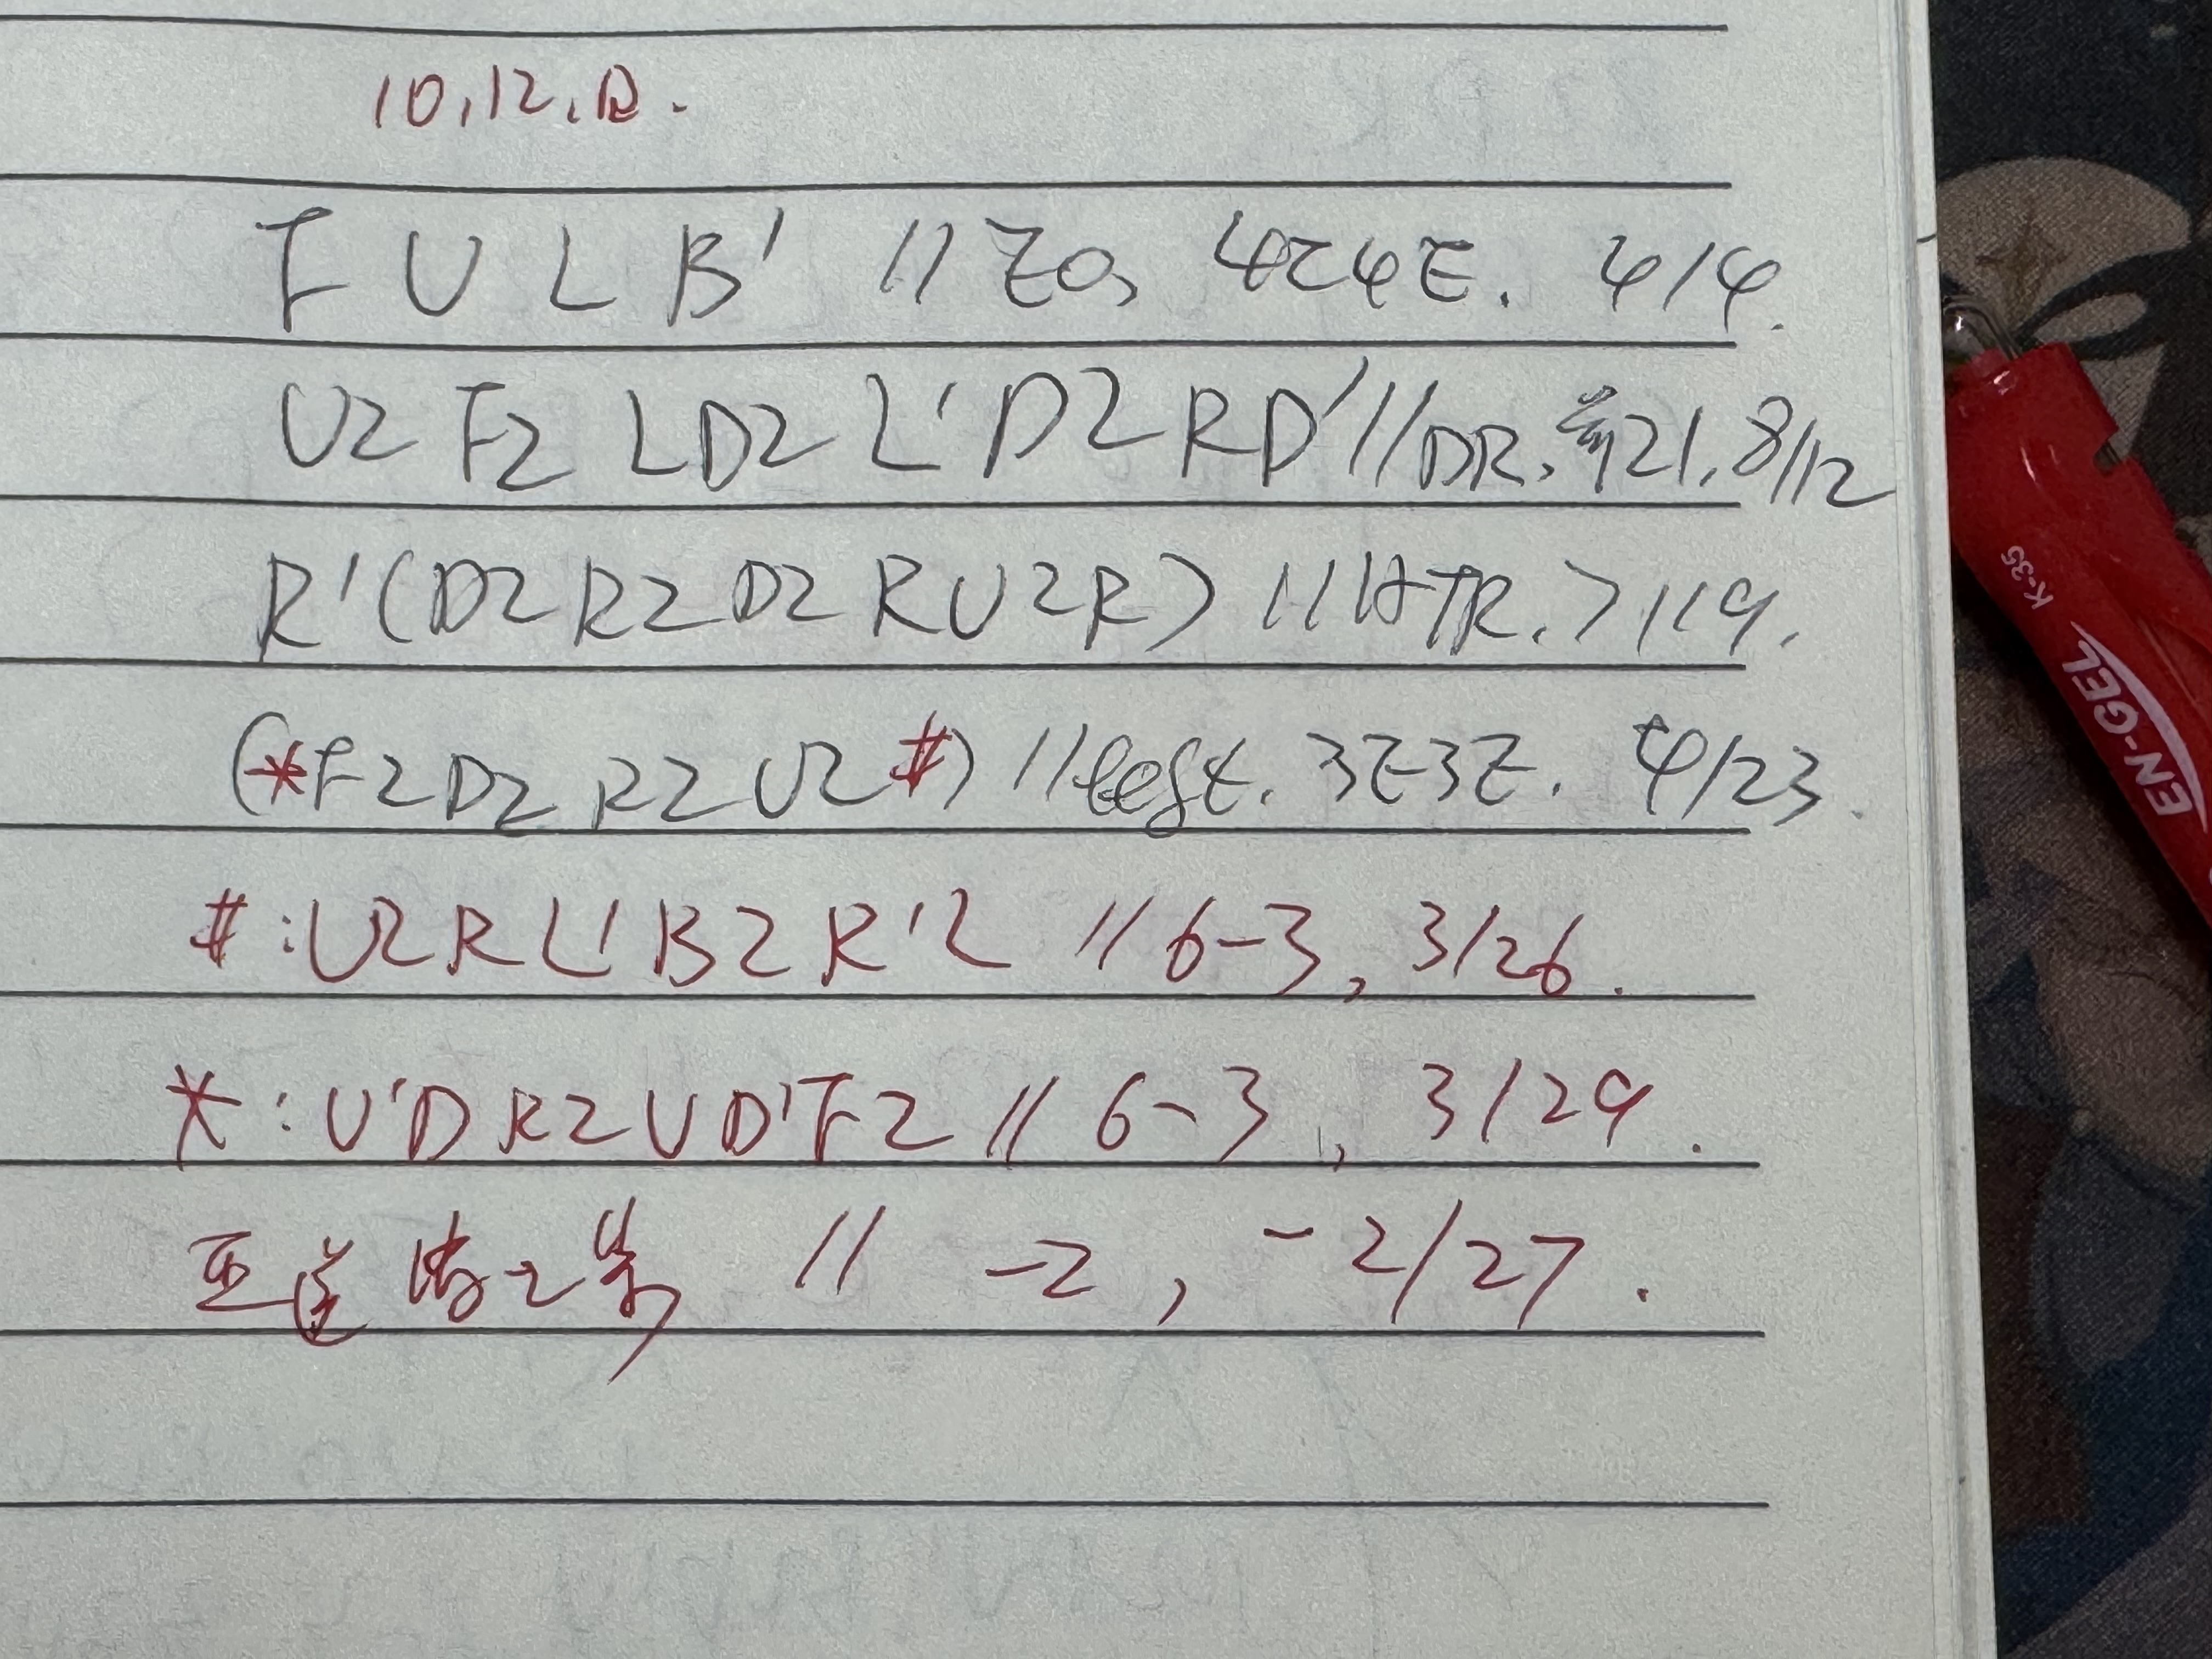 10.12.B.
F U L B' // EO, 4C4E. 4/4.
U2 F2 L D2 L' D2 R D' // DR, 21, 8/12
R' (D2 R2 D2 R U2 R) // HTR. 7/19.
(*F2 D2 R2 U2 #) // left. 3E3E. 4/23.
#: U2 R L' B2 R' L // 6-3, 3/26.
*: U' D R2 U D' F2 // 6-3, 3/29.
// -2, -2/27.
K-35
EN-GEL